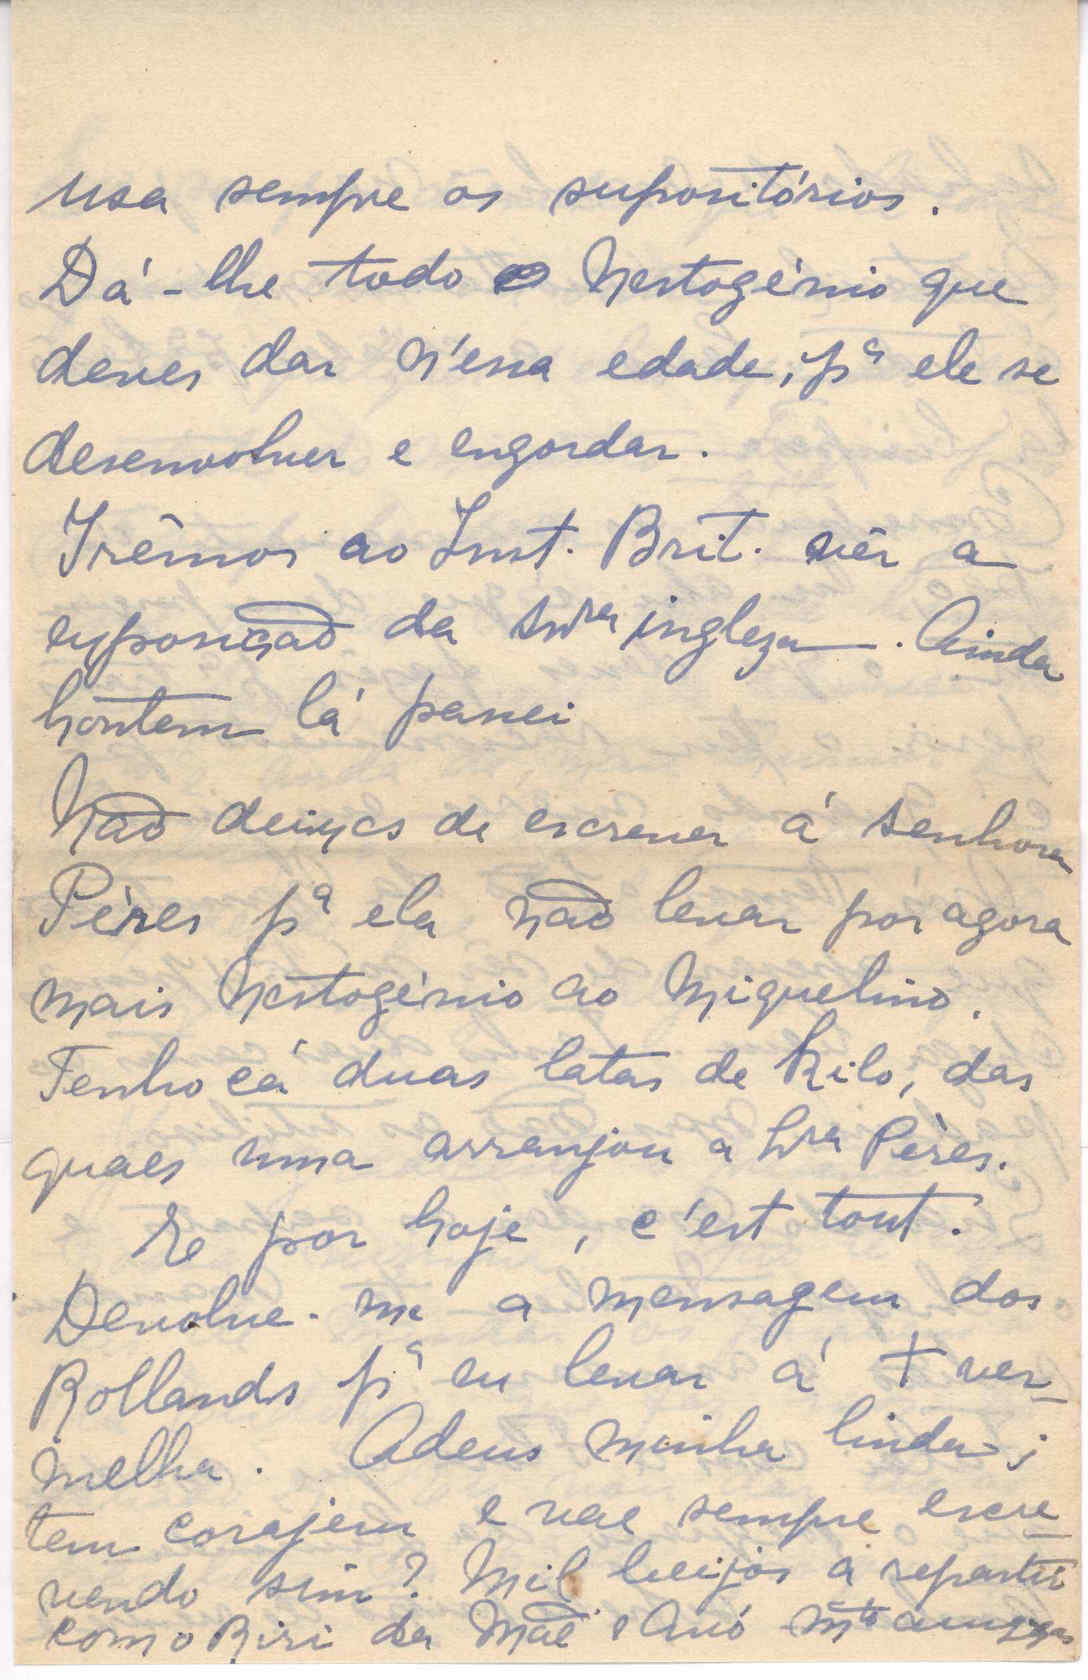 usa sempre os supositórios.
Dá-lhe todo o Nestogénio que
deves dar n'essa edade, pª ele se
desenvolver e engordar.
Irêmos ao Inst. Brit. vêr a
exposição da Snra ingleza. Ainda
hontem lá passei
Não deixes de escrever á Senhora
Pères pª ela não levar por agora
mais Nestogénio ao Miguelino.
Tenho cá duas latas de kilo, das
quaes uma arranjou a Snra Pères.
E por hoje, c'est tout.
Devolve-me a mensagem dos
Rollands pª eu levar á + ver-
melha. Adeus minha linda;
tem corajem e vae sempre escre-
vendo sim? Mil beijos a repartir
com o Riri da Mãe e Avó mto amigas